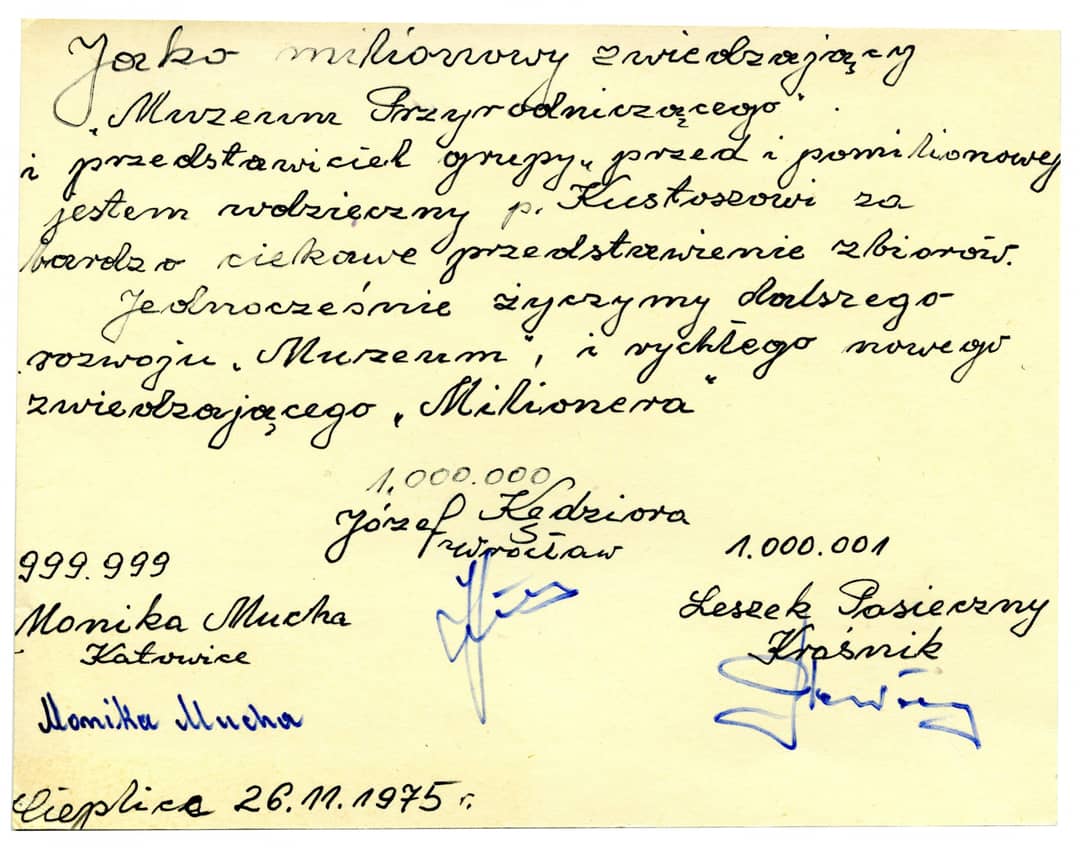 Jako milionowy zwiedzający
"Muzeum Przyrodniczącego".
i przedstawiciel grupy „przed i pomilionowej
jestem wdzięczny p. Kustoszowi za
bardzo ciekawe przedstawienie zbiorów.
Jednocześnie życzymy dalszego
rozwoju „Muzeum", i rychłego nowego
zwiedzającego „Milionera"
1.000.000
Józef Kędziora
Wrocław
999.999
Monika Mucha
Katowice
Monika Mucha
1.000.001
Leszek Pasieczny
Kraśnik
Cieplice 26.11.1975 r.